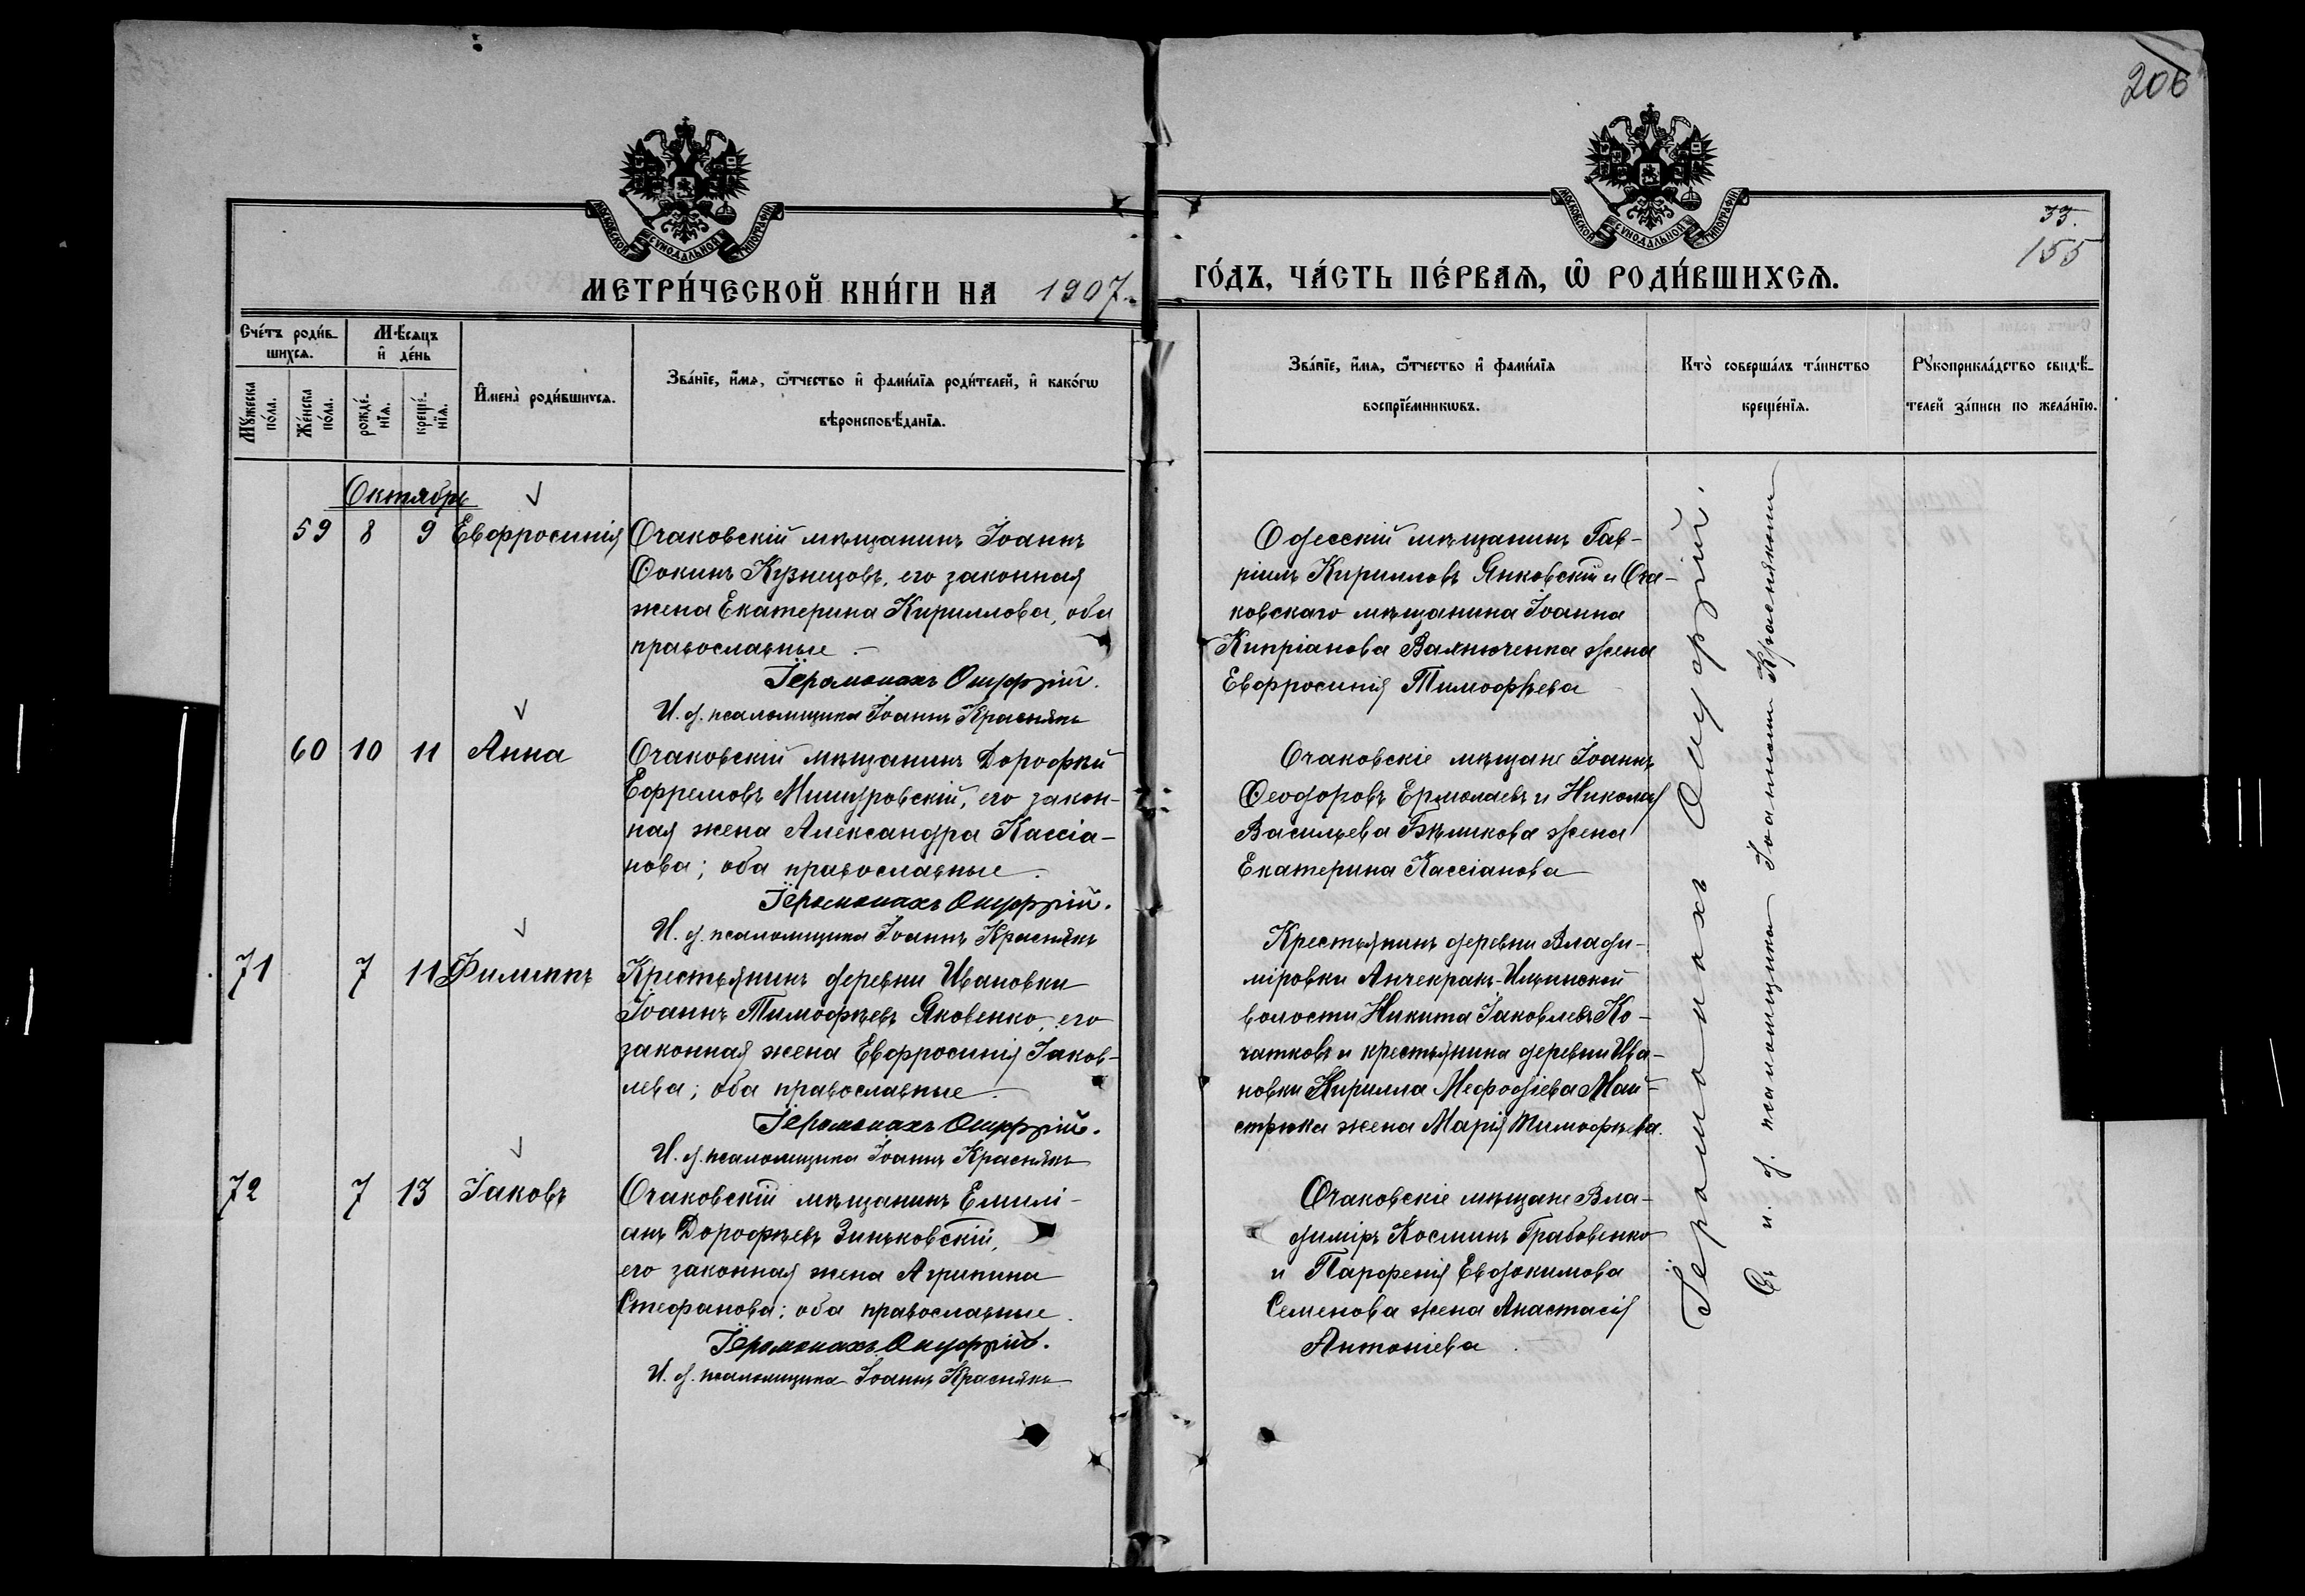 206
33.
155
МОСКОВСКОЙ СѴНОДАЛЬНОЙ ТИПОГРАФІИ
МОСКОВСКОЙ СѴНОДАЛЬНОЙ ТИПОГРАФІИ
МЕТРИ́ЧЕСКОЙ КНИ́ГИ НА 1907
ГО́ДЪ, ЧА́СТЬ ПЕ́РВАѦ, Ѡ҆ РОДИ́ВШИХСѦ.
Сче́тъ роди́в-
шихсѧ.
Мѣ́сяцъ
и҆ де́нь
Мꙋ́жеска по́ла.
Же́нска по́ла.
рожде́-
нїѧ.
креще́-
нїѧ.
И҆мена̀ роди́вшихсѧ.
Зва́нїе, и҆́мѧ, ѻ҆́тчество и҆ фами́лїѧ роди́телей, и҆ како́гѡ
вѣроисповѣ́данїѧ.
Зва́нїе, и҆́мѧ, ѻ҆́тчество и҆ фами́лїѧ
воспрїе́мникѡвъ.
Кто̀ соверша́лъ та́инство
креще́нїѧ.
Рꙋкоприкла́дство свидѣ́-
телей за́писи по жела́нїю.
Октябрь
59 8 9 Евфросинія
Очаковскій мѣщанинъ Іоаннъ
Ѳокинъ Кузнецовъ, его законная
жена Екатерина Кириллова, оба
православные.
Іеромонахъ Онуфрій.
И. д. псаломщика Іоаннъ Краснякъ
Одесскій мѣщанинъ Гав-
ріилъ Кирилловъ Янковскій и Оча-
ковскаго мѣщанина Іоанна
Кипріанова Валнюченка жена
Евфросинія Тимофѣева
60 10 11 Анна
Очаковскій мѣщанинъ Дорофей
Ефремовъ Мишуровскій, его закон-
ная жена Александра Кассіа-
нова; оба православные.
Іеромонахъ Онуфрій.
И. д. псаломщика Іоаннъ Краснякъ
Очаковскіе мѣщане Іоаннъ
Ѳеодоровъ Ермолаевъ и Николая
Васильева Бѣликова жена
Екатерина Кассіанова
71 7 11 Филиппъ
Крестьянинъ деревни Ивановки
Іоаннъ Тимофѣевъ Яковенко, его
законная жена Евфросинія Іаков-
лева; оба православные.
Іеромонахъ Онуфрій.
И. д. псаломщика Іоаннъ Краснякъ
Крестьянинъ деревни Влади-
міровки Анчекракъ-Ильинской
волости Никита Іаковлевъ Ко-
чатковъ и крестьянина деревни Ива-
новки Кирилла Мефодіева Май-
стрюка жена Марія Тимофѣева.
72 7 13 Іаковъ
Очаковскій мѣщанинъ Емилі-
анъ Дорофѣевъ Зиньковскій,
его законная жена Агрипина
Стефанова; оба православные.
Іеромонахъ Онуфрій.
И. д. псаломщика Іоаннъ Краснякъ
Очаковскіе мѣщане Вла-
диміръ Косминъ Грабовенко
и Парфенія Евдокимова
Семенова жена Анастасія
Антоніева.
Іеромонахъ Онуфрій.
Съ и. д. псаломщика Іоанномъ Краснякомъ